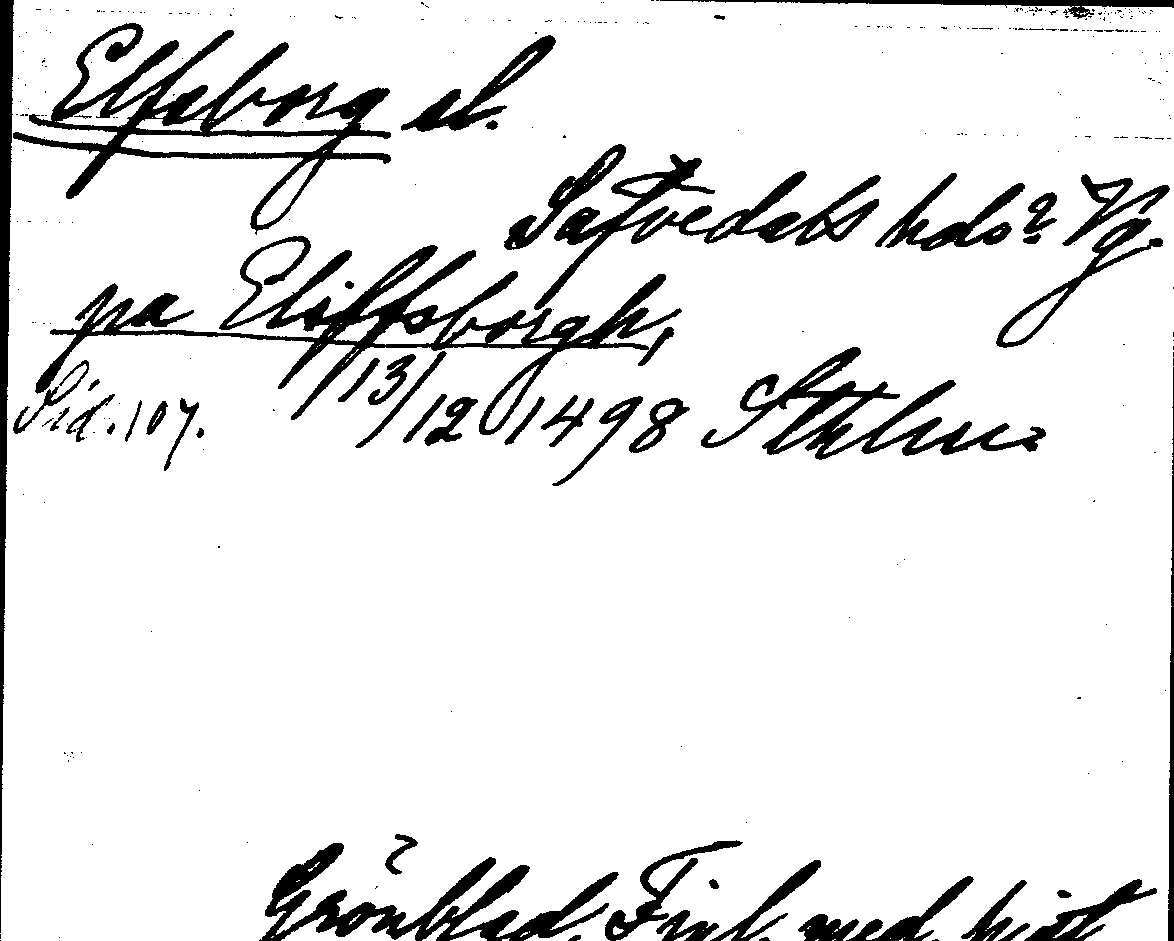 Elfsborg sl.
Säfvedals hds? Vg.
pa Eliffsborgh,
Sid. 107. 13/12 1498 Sthlm.
Grönblad, Finl. med.hist